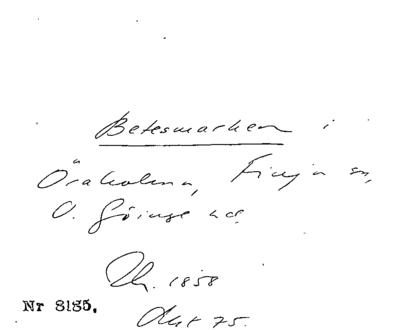 Betesmarken i
Öraholma, Finja sn,
V. Göinge hd.
Th. 1858
Akt 75.
Nr 8185.